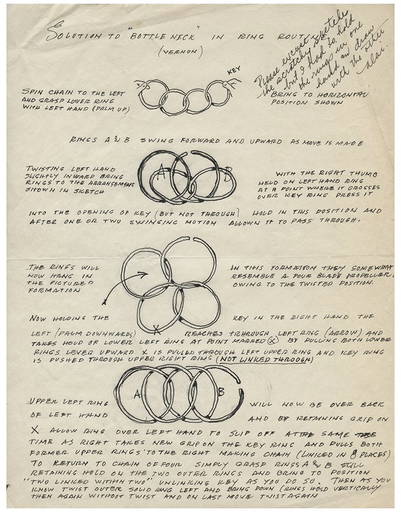 SOLUTION TO "BOTTLE NECK" IN RING ROUTINE
(VERNON)
These
sketchy
and I had to hold
the rings in one
hand and draw
with the other
also.
KEY
SPIN CHAIN TO THE LEFT
AND GRASP LOWER RING
WITH LEFT HAND (PALM UP)
BRING TO HORIZONTAL
POSITION SHOWN
RINGS A & B SWING FORWARD AND UPWARD AS MOVE IS MADE
TWISTING LEFT HAND
SLIGHTLY INWARD BRING
RINGS TO THE ARRANGEMENT
SHOWN IN SKETCH
A
B
WITH THE RIGHT THUMB
HELD ON LEFT HAND RING
AT A POINT WHERE IT CROSSES
OVER KEY RING PRESS IT
INTO THE OPENING OF KEY (BUT NOT THROUGH) HOLD IN THIS POSITION AND
AFTER ONE OR TWO SWINGING MOTION ALLOW IT TO PASS THROUGH.
THE RINGS WILL
NOW HANG IN
THE PICTURED
FORMATION
IN THIS FORMATION THEY SOMEWHAT
RESEMBLE A FOUR BLADE PROPELLER,
OWING TO THE TWISTED POSITION.
X
NOW HOLDING THE KEY IN THE RIGHT HAND THE
LEFT (PALM DOWNWARD) REACHES THROUGH LEFT RING (ARROW) AND
TAKES HOLD OF LOWER LEFT RING AT POINT MARKED (X) BY PULLING BOTH LOWER
RINGS LEVER UPWARD X IS PULLED THROUGH LEFT UPPER RING AND KEY RING
IS PUSHED THROUGH UPPER RIGHT RING (NOT LINKED THROUGH)
A
B
UPPER LEFT RING WILL NOW BE OVER BACK
OF LEFT HAND AND BY RETAINING GRIP ON
X ALLOW RING OVER LEFT HAND TO SLIP OFF AT THE SAME
TIME AS RIGHT TAKES NEW GRIP ON THE KEY RING AND PULLS BOTH
FORMER UPPER RINGS TO THE RIGHT MAKING CHAIN (LINKED IN 6 PLACES)
TO RETURN TO CHAIN OF FOUR SIMPLY GRASP RINGS A & B STILL
RETAINING HOLD ON THE TWO OUTER RINGS AND BRING TO POSITION
"TWO LINKED WITHIN TWO" UNLINKING KEY AS YOU DO SO. THEN AS YOU
KNOW TWIST OUTER SOLID RING LEFT AND BRING DOWN (RINGS HOLD VERTICALLY
THEN AGAIN WITHOUT TWIST AND ON LAST MOVE TWIST AGAIN